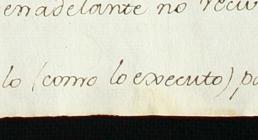 enadelante no recu
lo (como lo executo) pa